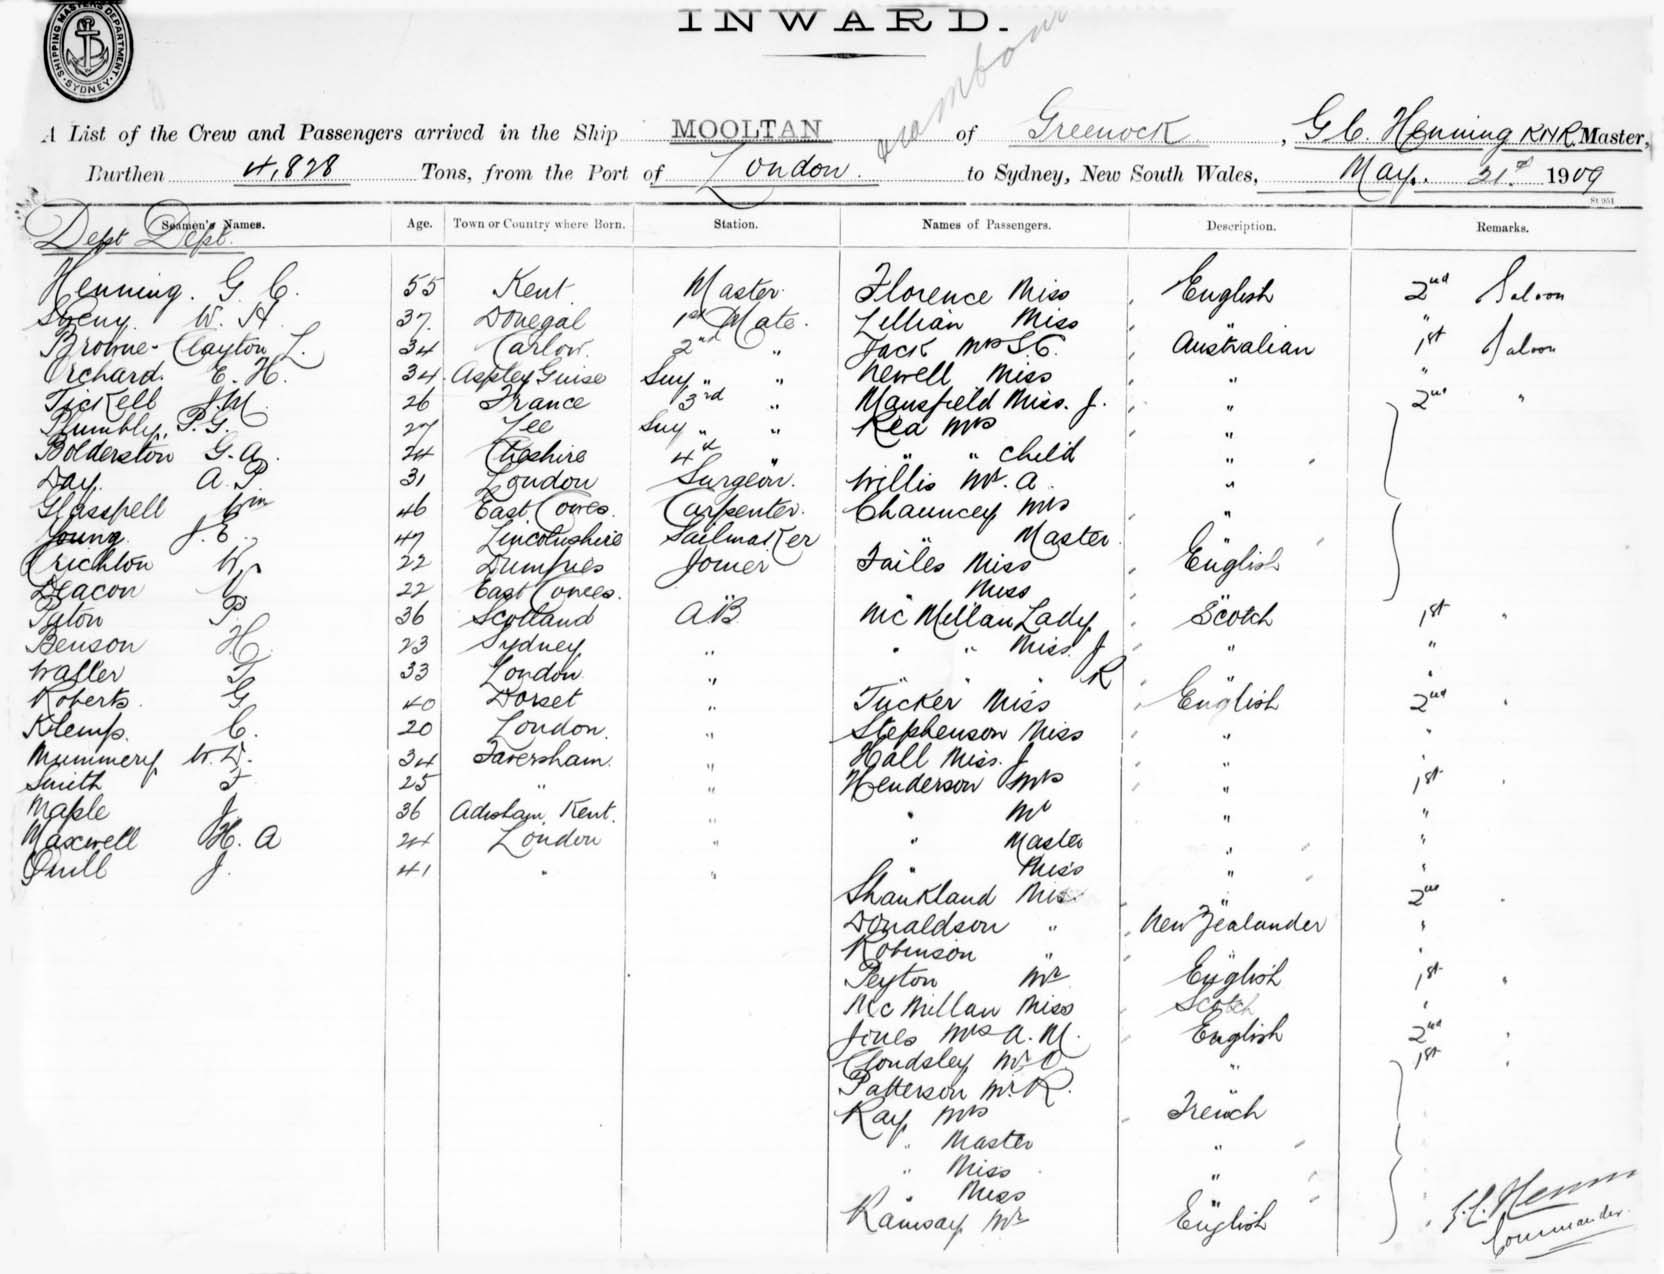 INWARD.
SHIPPING MASTERS DEPARTMENT. SYDNEY.
A List of the Crew and Passengers arrived in the Ship MOOLTAN of Greenock, G.C. Henning RNR Master,
Burthen 4,828 Tons, from the Port of London to Sydney, New South Wales, May. 21st 1909
St 951
Seamen's Names. Age. Town or Country where Born. Station. Names of Passengers. Description. Remarks.
Deck Dept.
Henning. G. C. 55 Kent Master Florence Miss English 2nd Saloon
Sweny. W. H. 37. Donegal 1st Mate. Lillian Miss " "
Browne-Clayton L. 34 Carlow. 2nd " Jack Mrs S.C. Australian 1st Saloon
Orchard. E. H. 34. Aspley Guise Suy " " Newell Miss " "
Tickell J.M. 26 France 3rd " Mansfield Miss. J. " 2nd "
Plumbly. P.G. 27 Lee Suy " " Rea Mrs "
Bolderston G.A. 24 Cheshire 4th " " " Child "
Day. A.P. 31 London Surgeon. Willis Mr. A. "
Glasspell Wm 46 East Cowes. Carpenter. Chauncey Mrs "
Young. J.E. 47 Lincolnshire Sailmaker " Master "
Crichton W. 22 Dumfries Joiner Failes Miss English
Deacon V 22 East Cowes. " " Miss "
Paton P. 36 Scotland AB McMillan Lady Scotch 1st "
Benson H. 23 Sydney " " " Miss. J " "
Waller F 33 London " " " " R " "
Roberts. G 40 Dorset " Tucker Miss English 2nd "
Klemp. C. 20 London. " Stephenson Miss " "
Mummery W.D. 34 Faversham. " Hall Miss. J " "
Smith F 25 " " Henderson Mrs " 1st "
Maple J. 36 Adisham, Kent. " " Mr " "
Maxwell H. A 24 London " " Master " "
Quill J. 41 " " " Miss " "
Shankland Miss " 2nd "
Donaldson " New Zealander "
Robinson " " "
Peyton Mr English 1st "
McMillan Miss Scotch "
Jones Mrs A.M. English 2nd "
Cloudsley Mr C. " 1st "
Patterson Mr. R. "
Ray Mrs French
" Master "
" Miss "
" Miss "
Ramsay Mr English
G.C. Henning
Commander.